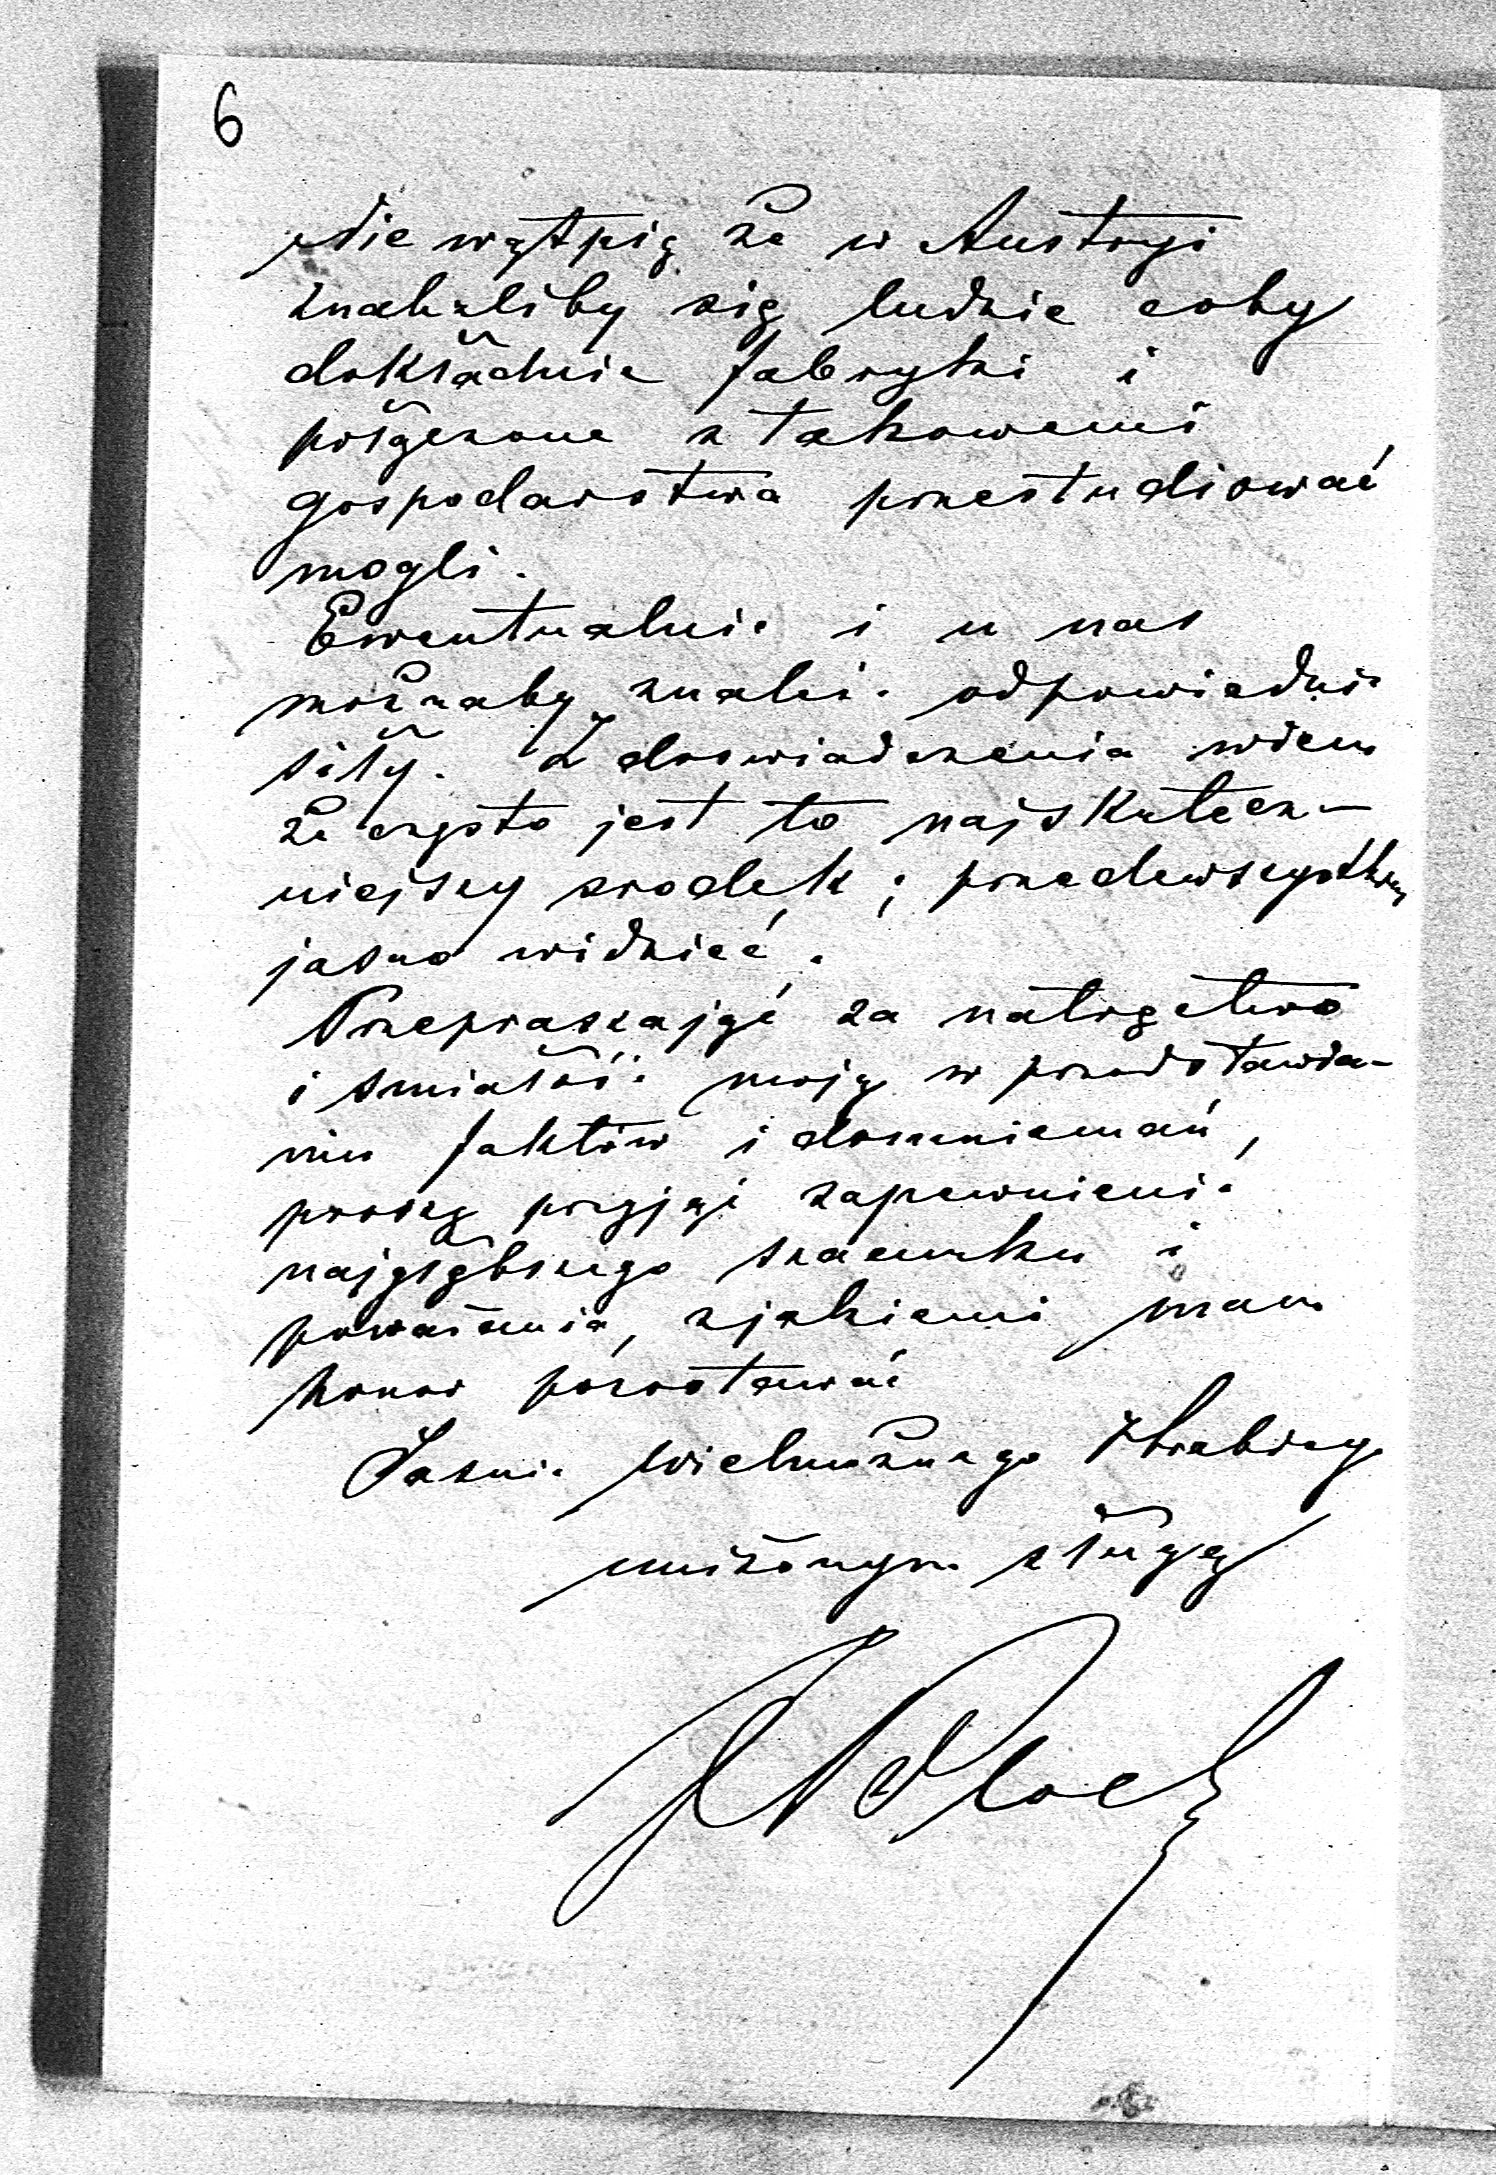 6
Nie wątpię że w Austryi
znaleźliby się ludzie coby
dokładnie fabryki i
połączone z takowemi
gospodarstwa przestudiować
mogli.
Ewentualnie i u nas
możnaby znaleść odpowiednie
siły. Z doswiadczenia wiem
że często jest to najskutecz-
niejszy srodek; przedewszystkiem
jasno widzieć.
Przepraszając za natręctwo
i smiałość moją w przedstawia-
niu faktów i domniemań,
proszę przyjąć zapewnienie
najgłębszego szacunku i
poważania, z jakiemi mam
honor pozostawać
Jasnie Wielmożnego Hrabiego
uniżonym sługą
Bloch